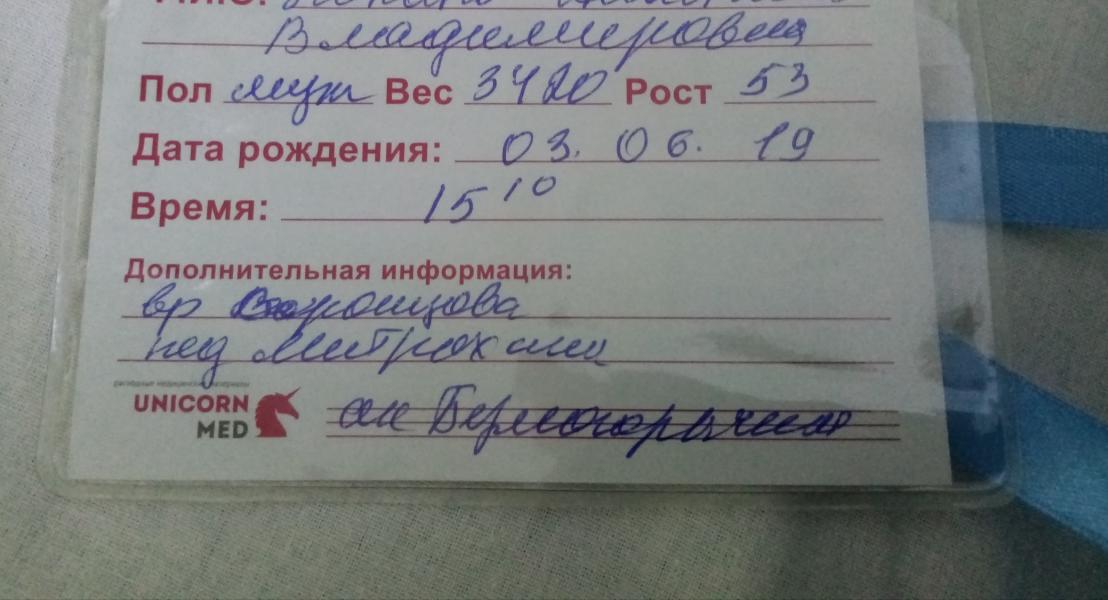 Ф.И.О.
Владимировна
Пол муж Вес 3420 Рост 53
Дата рождения: 03. 06. 19
Время: 15 10
Дополнительная информация:
вр Воронцова
пед Митрохина
расходные медицинские материалы
UNICORN
MED
ак